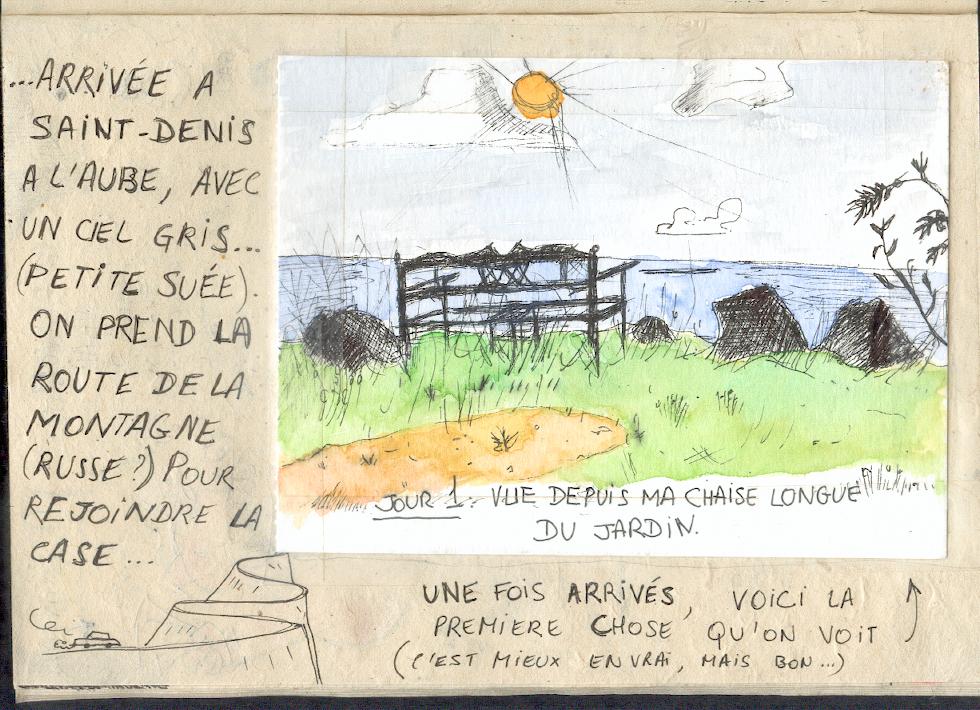 ...ARRIVÉE A
SAINT-DENIS
A L'AUBE, AVEC
UN CIEL GRIS...
(PETITE SUÉE).
ON PREND LA
ROUTE DE LA
MONTAGNE
(RUSSE?) POUR
REJOINDRE LA
CASE...
JOUR 1: VUE DEPUIS MA CHAISE LONGUE
DU JARDIN.
UNE FOIS ARRIVÉS, VOICI LA
PREMIERE CHOSE QU'ON VOIT
(C'EST MIEUX EN VRAI, MAIS BON...)